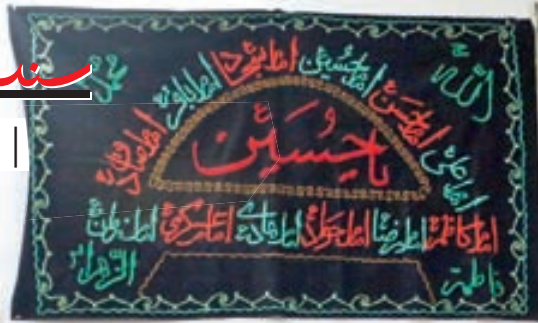 الله
محمد
امام علی امام حسن امام حسین امام سجاد امام باقر امام صادق
یا حسین
امام کاظم امام رضا امام جواد امام هادی امام عسکری امام زمان
فاطمة الزهراء